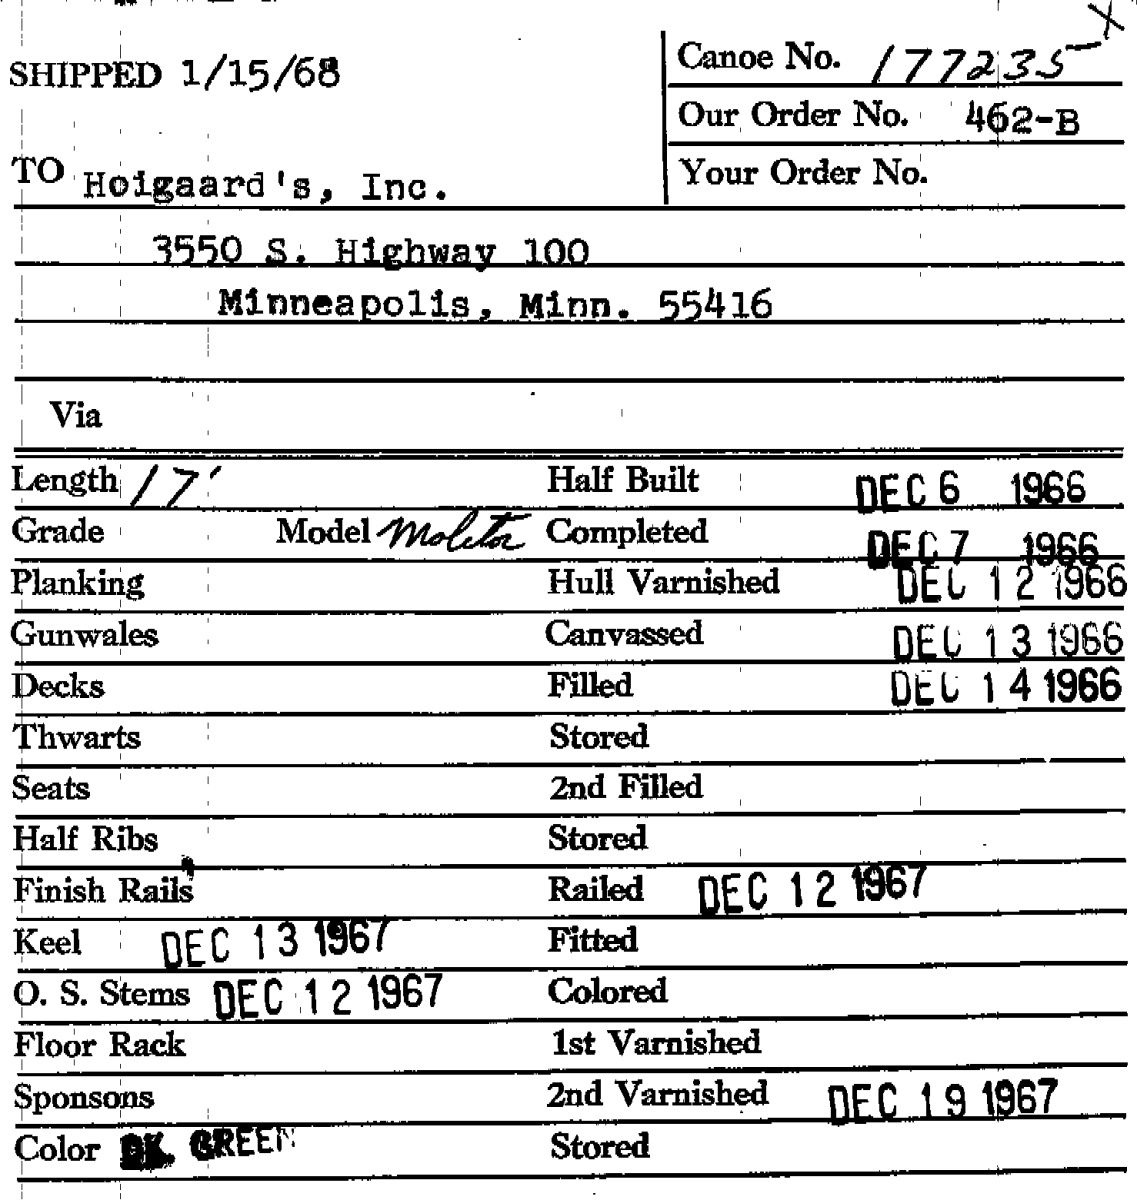 SHIPPED 1/15/68
Canoe No. 177235
Our Order No. 462-B
Your Order No.
TO Hoigaard's, Inc.
3550 S. Highway 100
Minneapolis, Minn. 55416
Via
Length 17' Half Built DEC 6 1966
Grade Model Molitor Completed DEC 7 1966
Planking Hull Varnished DEC 12 1966
Gunwales Canvassed DEC 13 1966
Decks Filled DEC 14 1966
Thwarts Stored
Seats 2nd Filled
Half Ribs Stored
Finish Rails Railed DEC 12 1967
Keel DEC 13 1967 Fitted
O. S. Stems DEC 12 1967 Colored
Floor Rack 1st Varnished
Sponsons 2nd Varnished DEC 19 1967
Color DK. GREEN Stored